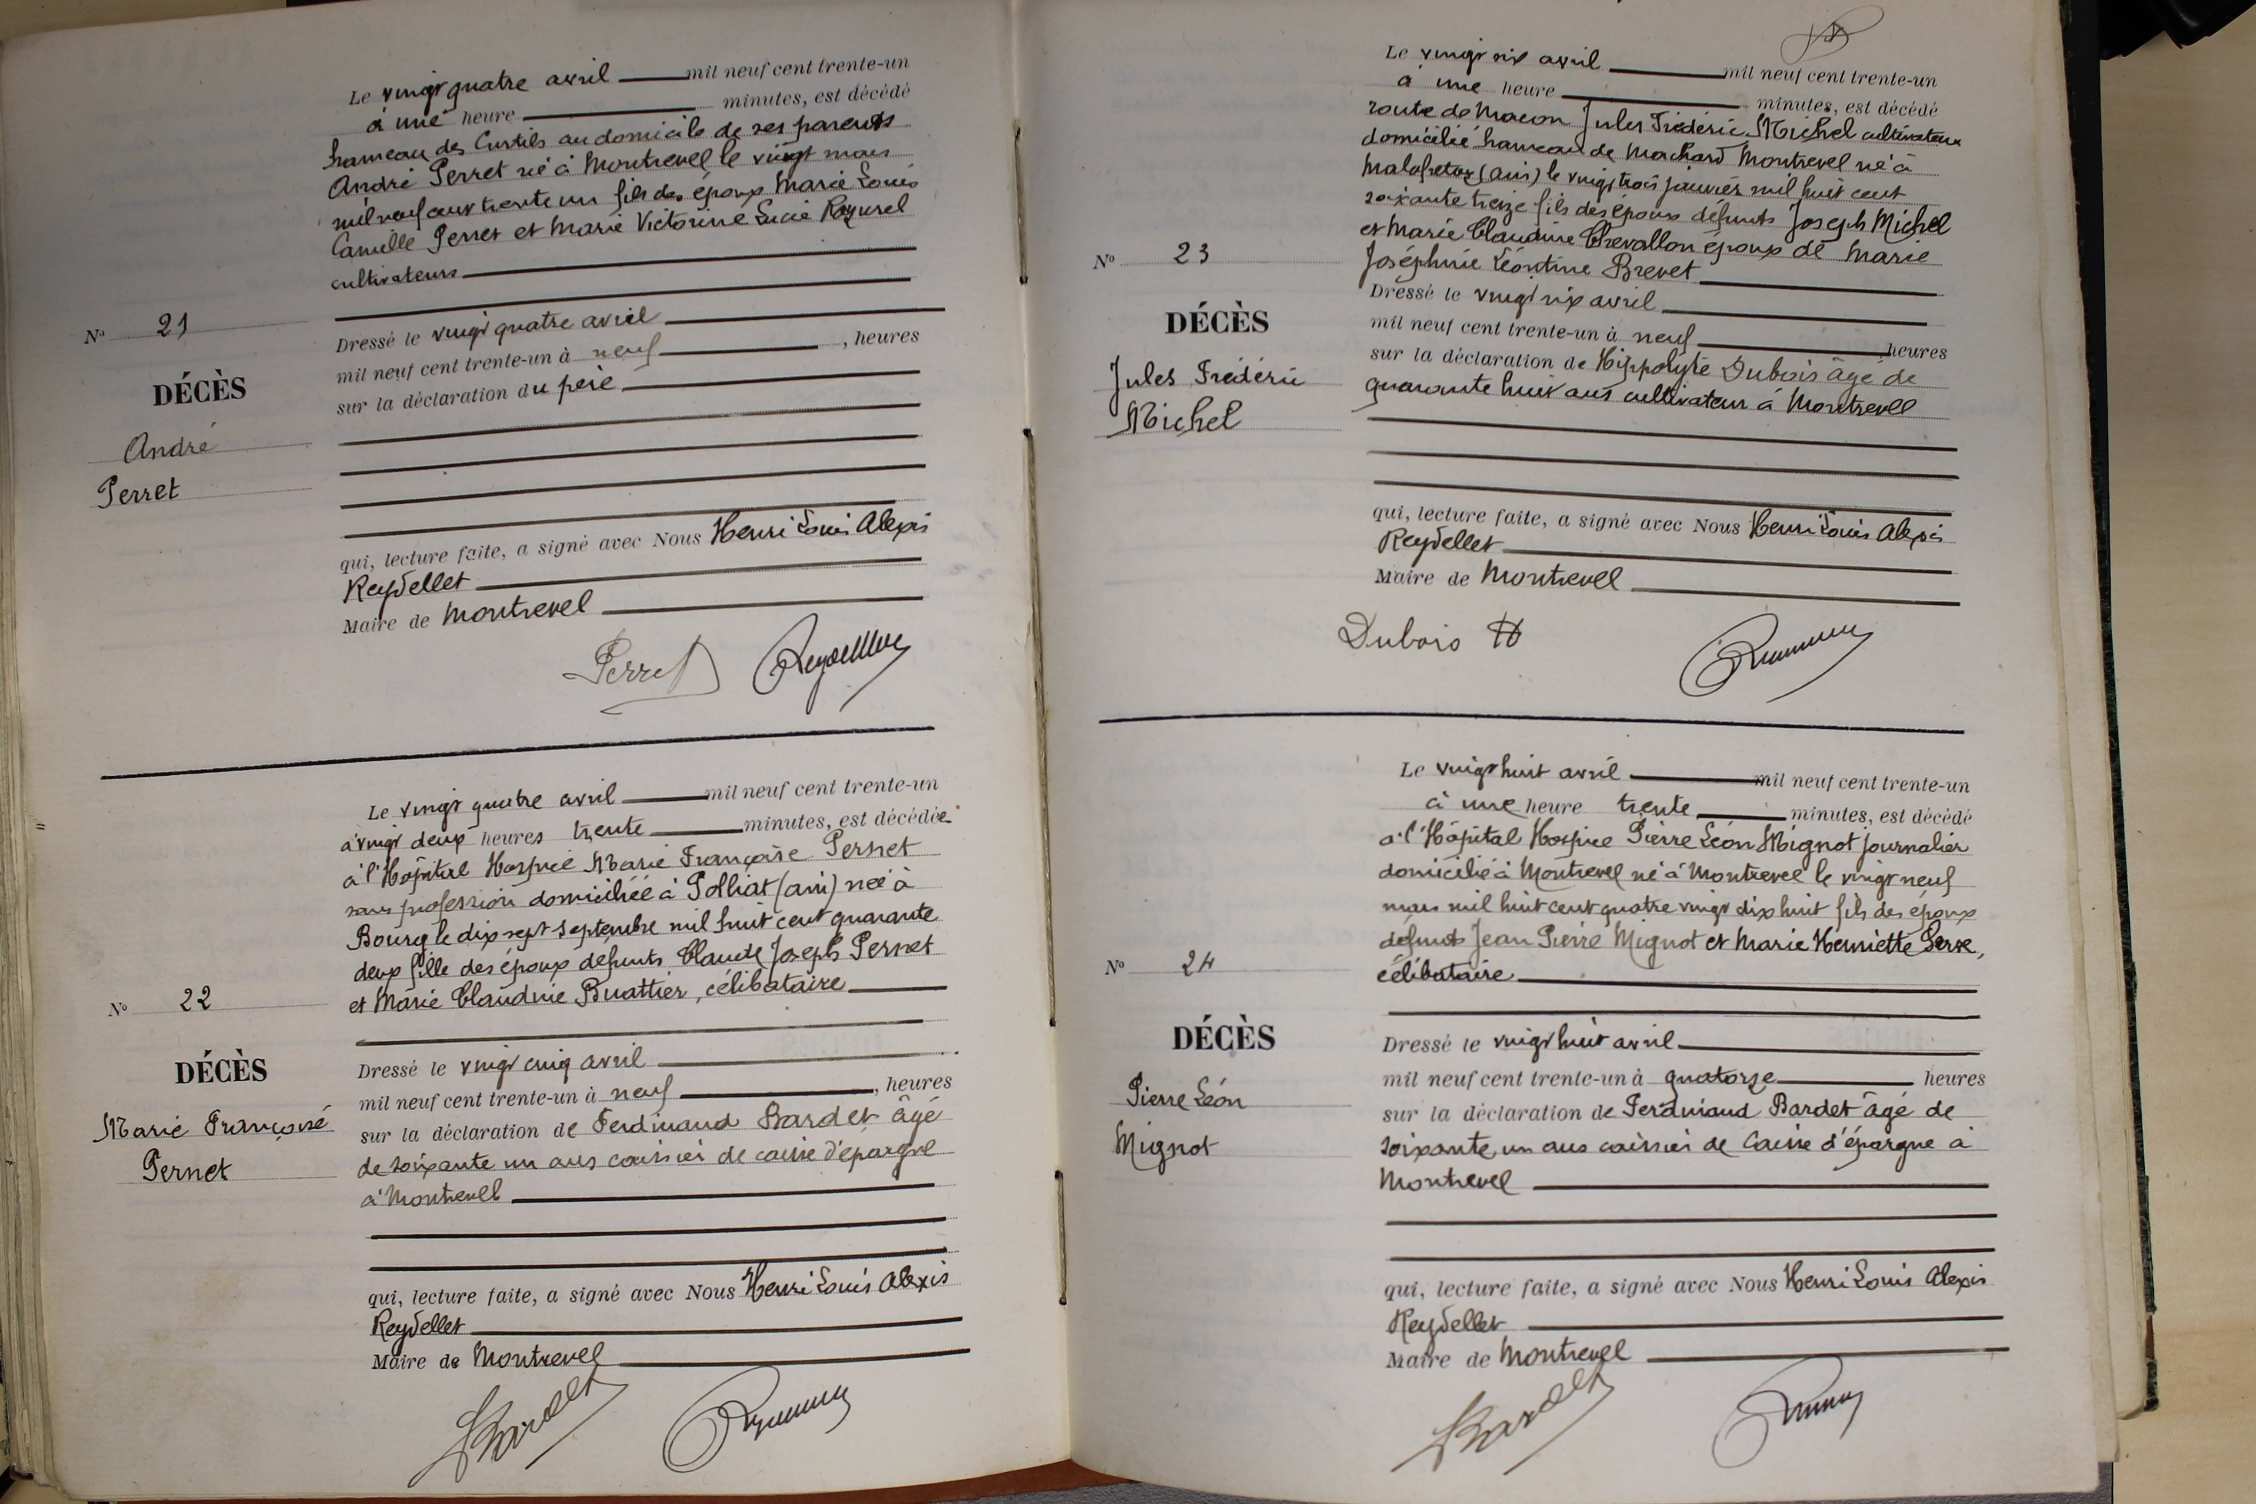 Le vingt quatre avril mil neuf cent trente-un
à une heure minutes, est décédé
hameau des Curtils au domicile de ses parents
André Perret né à Montrevel le vingt mars
mil neuf cent trente un fils des époux Marie Louis
Camille Perret et Marie Victorine Lucie
cultivateurs
No 21
DÉCÈS
André
Perret
Dressé le vingt quatre avril
mil neuf cent trente-un à neuf, heures
sur la déclaration du père
qui, lecture faite, a signé avec Nous Henri Louis Alexis
Reydellet
Maire de Montrevel
Perret Reydellet
Le vingt quatre avril mil neuf cent trente-un
à vingt deux heures trente minutes, est décédée
à l'Hôpital Hospice Marie Françoise Pernet
sans profession domiciliée à Polliat (ain) née à
Bourg le dix sept septembre mil huit cent quarante
deux fille des époux défunts Claude Joseph Pernet
et Marie Claudine Buattier, célibataire
No 22
DÉCÈS
Marie Françoise
Pernet
Dressé le vingt cinq avril
mil neuf cent trente-un à neuf, heures
sur la déclaration de Ferdinand Bardet âgé
de soixante un ans caissier de caisse d'épargne
à Montrevel
qui, lecture faite, a signé avec Nous Henri Louis Alexis
Reydellet
Maire de Montrevel
Bardet
Le vingt six avril mil neuf cent trente-un
à une heure minutes, est décédé
route de Macon Jules Frédéric Michel cultivateur
domicilié hameau de Machard Montrevel né à
Malafretaz (ain) le vingt trois janvier mil huit cent
soixante treize fils des époux défunts Joseph Michel
et Marie Claudine Chevallon époux de Marie
Joséphine Léontine Brevet
No 23
DÉCÈS
Jules Frédéric
Michel
Dressé le vingt six avril
mil neuf cent trente-un à neuf heures
sur la déclaration de Hippolyte Dubois âgé de
quarante huit ans cultivateur à Montrevel
qui, lecture faite, a signé avec Nous Henri Louis Alexis
Reydellet
Maire de Montrevel
Dubois H
Le vingt huit avril mil neuf cent trente-un
à une heure trente minutes, est décédé
à l'Hôpital Hospice Pierre Léon Mignot journalier
domicilié à Montrevel né à Montrevel le vingt neuf
mars mil huit cent quatre vingt dix huit fils des époux
défunts Jean Pierre Mignot et Marie Henriette Serve,
célibataire
No 24
DÉCÈS
Pierre Léon
Mignot
Dressé le vingt huit avril
mil neuf cent trente-un à quatorze heures
sur la déclaration de Ferdinand Bardet âgé de
soixante un ans caissier de Caisse d'épargne à
Montrevel
qui, lecture faite, a signé avec Nous Henri Louis Alexis
Reydellet
Maire de Montrevel
Bardet